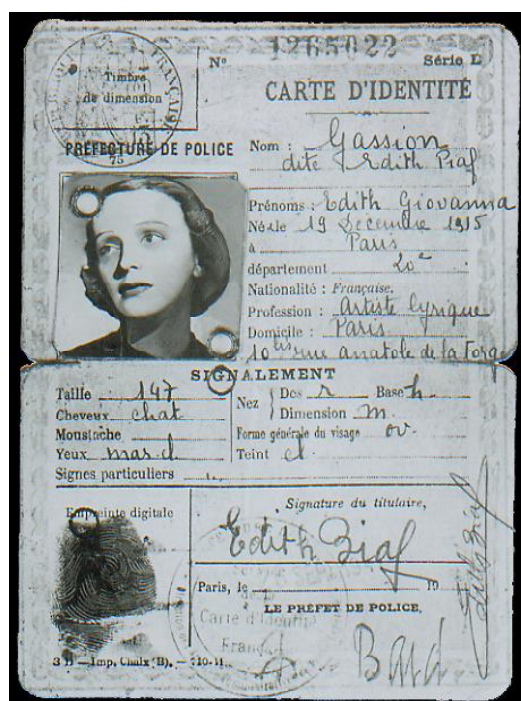 Nº 1765022 Série D
Timbre
de dimension
FRANÇAISE
75
CARTE D'IDENTITÉ
PRÉFECTURE DE POLICE
Nom : Gassion
dite Edith Piaf
Prénoms : Edith Giovanna
Née le 19 Décembre 1915
à Paris
département 20e
Nationalité : Française.
Profession : Artiste lyrique
Domicile : Paris
10 bis rue anatole de la Forge
SIGNALEMENT
Taille 147
Cheveux chat
Moustache
Yeux mar. cl.
Signes particuliers
Nez Dos r Base h
Dimension m.
Forme générale du visage ov.
Teint cl.
Empreinte digitale
Signature du titulaire,
Edith Piaf
Edith Piaf
Paris, le 19
LE PRÉFET DE POLICE,
Carte d'Identité
Français
3 D — Imp. Chaix (B). — 710-41.